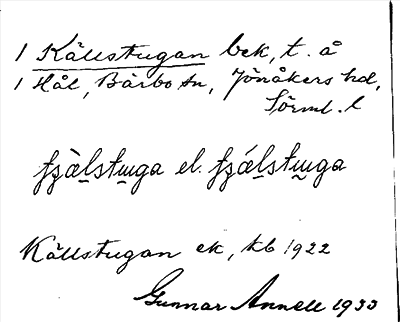 1 Källstugan bek, t. å
1 Hål, Bärbo sn, Jönåkers hd,
Sörml. l
Källstugan ek, kb 1922
Gunnar Annell 1933